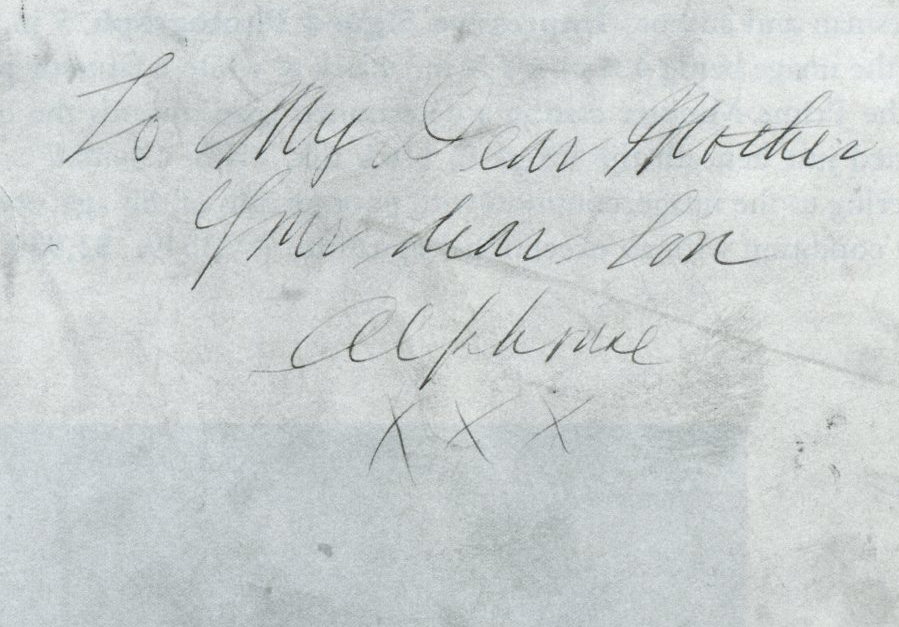 To My Dear Mother
Your dear Son
Alphonse
X X X